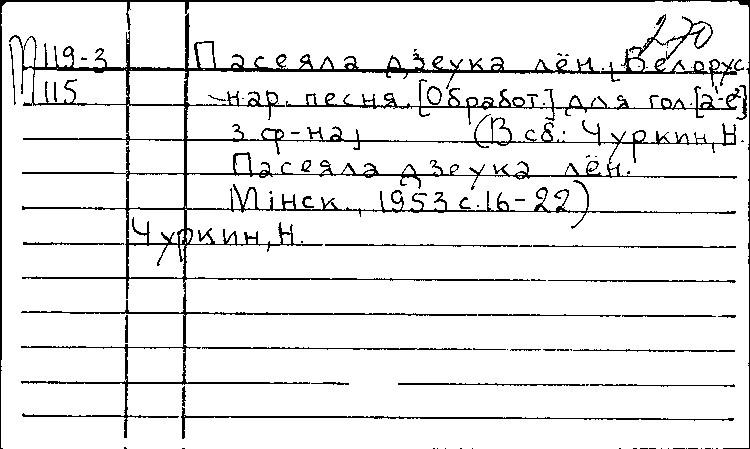 270
М119-3 Пасеяла дзеука лён. [Белорус.
115 нар. песня. [Обработ.] для гол. [a-e²]
з ф-на] (В сб.: Чуркин, Н.
Пасеяла дзеука лён.
Мінск., 1953 с. 16-22)
Чуркин, Н.